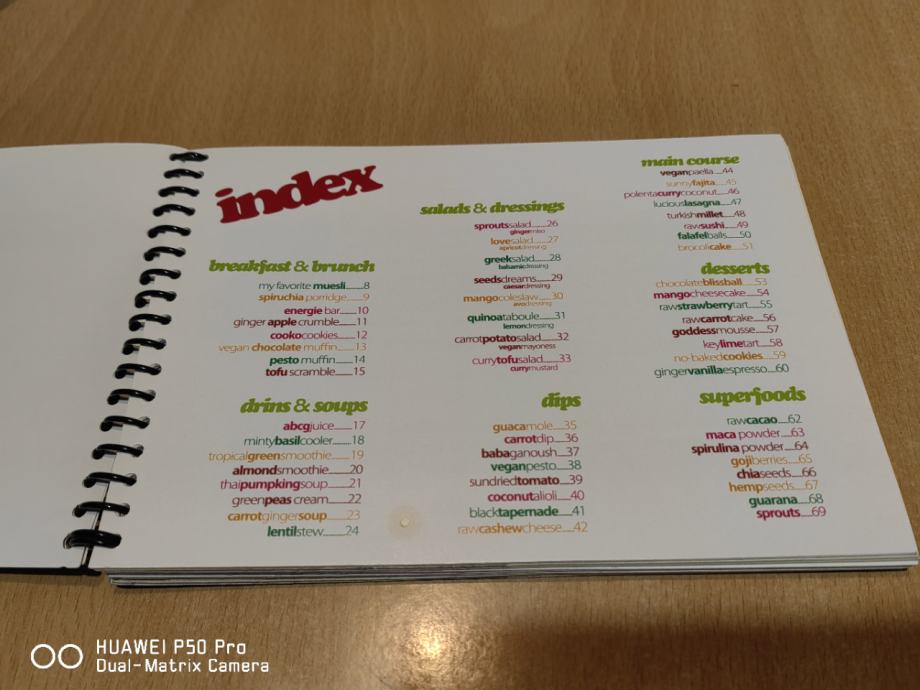 index
breakfast & brunch
my favorite muesli......8
spiruchia porridge......9
energie bar......10
ginger apple crumble......11
cookocookies......12
vegan chocolate muffin......13
pesto muffin......14
tofu scramble......15
drins & soups
abcgjuice......17
mintybasilcooler......18
tropicalgreensmoothie......19
almondsmoothie......20
thaipumpkingsoup......21
greenpeas cream......22
carrotgingersoup......23
lentilstew......24
salads & dressings
sproutssalad......26
gingermiso
lovesalad......27
apricotdressing
greeksalad......28
balsamicdressing
seedsdreams......29
caesardressing
mangocoleslaw......30
avodressing
quinoataboule......31
lemondressing
carrotpotatosalad......32
veganmayoness
currytofusalad......33
currymustard
dips
guacamole......35
carrotdip......36
babaganoush......37
veganpesto......38
sundriedtomato......39
coconutalioli......40
blacktapernade......41
rawcashewcheese......42
main course
veganpaella......44
sunnyfajita......45
polentacurrycoconut......46
luciouslasagna......47
turkishmillet......48
rawsushi......49
falafelballs......50
brocolicake......51
desserts
chocolateblissball......53
mangocheesecake......54
rawstrawberrytart......55
rawcarrotcake......56
goddessmousse......57
keylimetart......58
no-bakedcookies......59
gingervanillaespresso......60
superfoods
rawcacao......62
maca powder......63
spirulina powder......64
gojiberries......65
chiaseeds......66
hempseeds......67
guarana......68
sprouts......69
HUAWEI P50 Pro
Dual-Matrix Camera